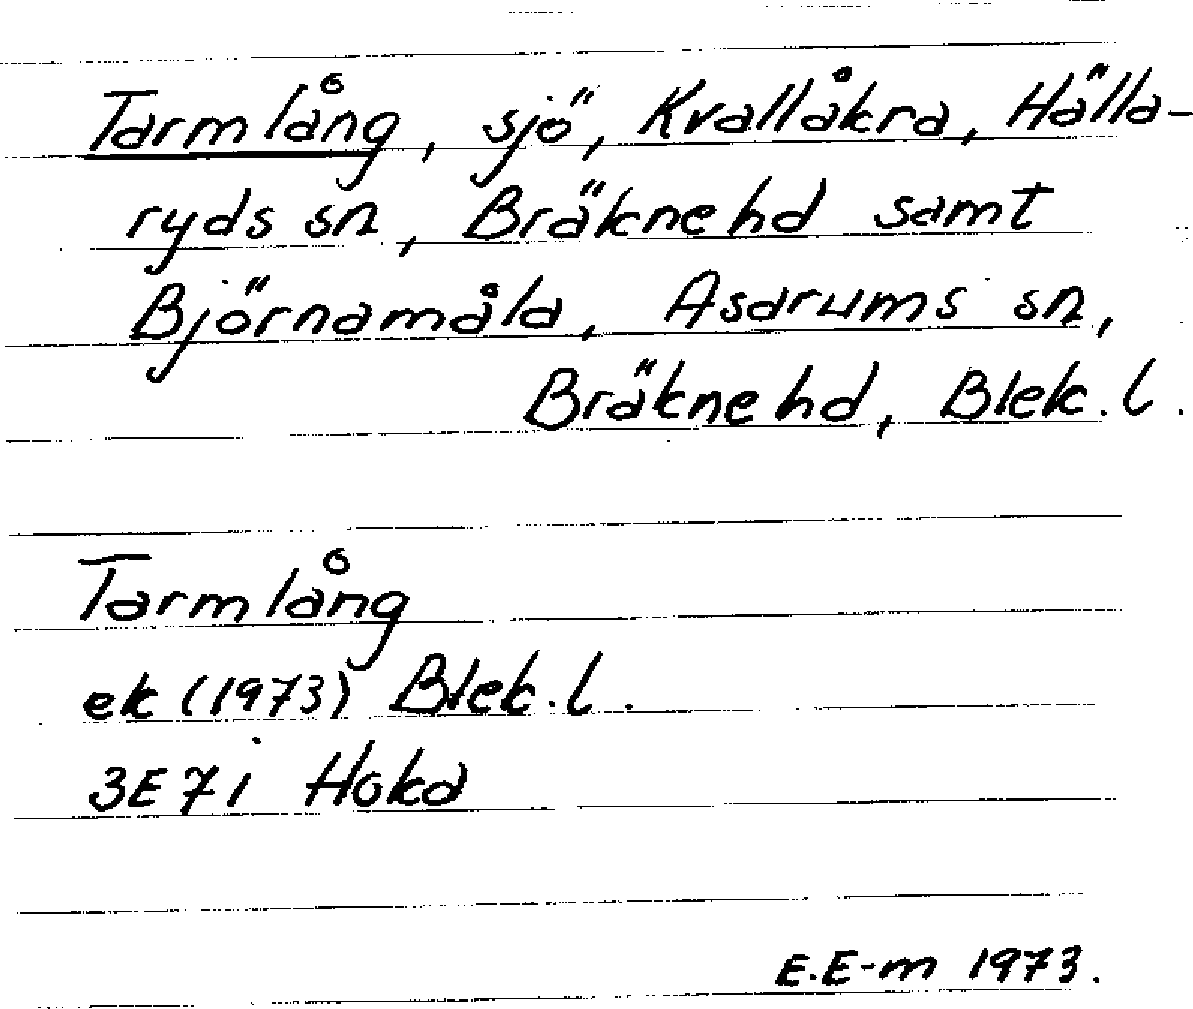 Tarmlång, sjö, Kvallåkra, Hälla-
ryds sn, Bräknehd samt
Björnamåla, Asarums sn,
Bräknehd, Blek. l.
Tarmlång
ek (1973) Blek. l.
3E7i Hoka
E.E-m 1973.